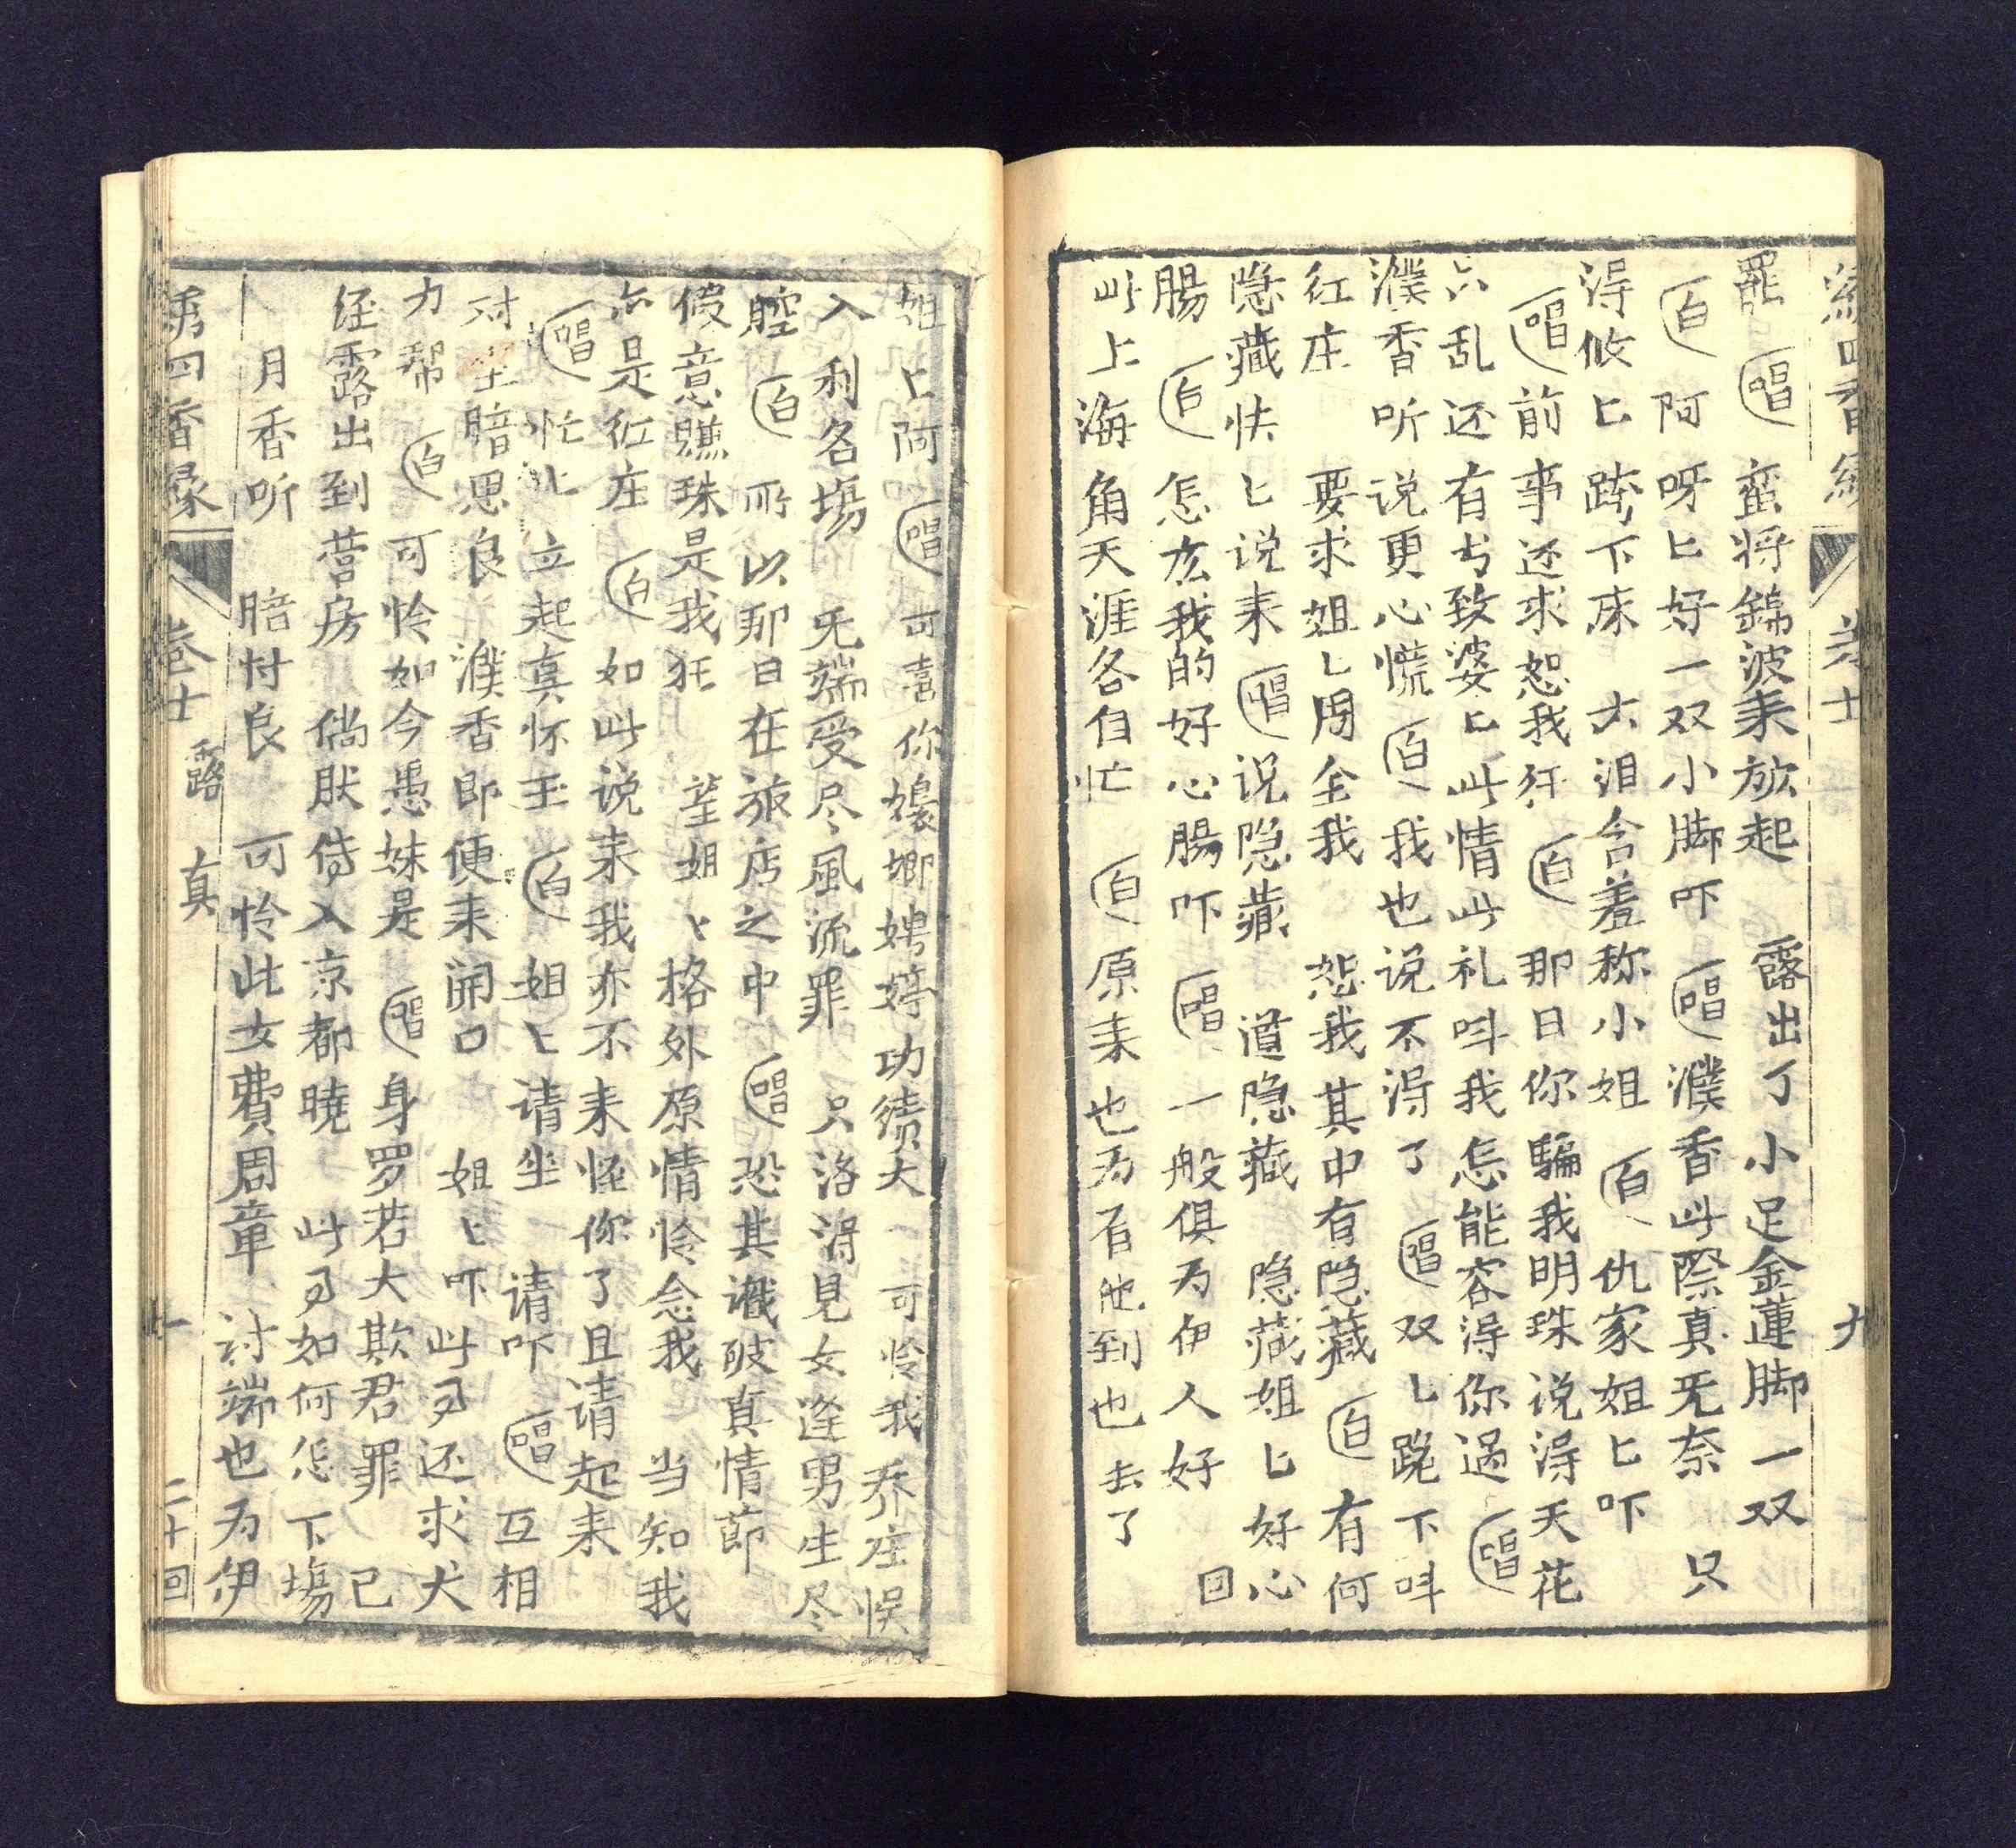 绣四香缘 卷十 九
罷 唱 蛮将錦波耒放起 露出了小足金蓮脚一双
白 阿呀匕好一双小脚吓 唱 濮香此際真旡奈 只
淂攸匕跡下床 大泪含羞称小姐 白 仇家姐匕吓
唱 前事还求恕我狂 白 那日你騙我明珠说淂天花
六乱还有甹致婆匕此情此礼呌我怎能容淂你過 唱
濮香听说更心慌 白 我也说不淂了 唱 双匕跪下呌
红庄 要求姐匕周全我 恕我其中有隐藏 白 有何
隐藏快匕说耒 唱 说隐藏 道隐藏 隐藏姐匕好心
腸 白 怎庅我的好心腸吓 唱 一般俱为伊人好 回
此上海角天涯各自忙 白 原耒也为百他到也去了
姐上阿 唱 可喜你嬝娜娉婷功绩大 可怜我乔庄悮
入利名塲 旡端受尽風流罪 只洛淂見女逢男生尽
腔 白 所以那日在旅店之中 唱 恐其识破真情節
假意賺珠是我狂 荃姐匕格外原情怜念我 当知我
亦是红庄 白 如此说耒我亦不耒怪你了且请起耒
唱 忙匕立起真怀玉 白 姐匕请坐 请吓 唱 互相
对坐暗思良 濮香郎便耒開口 姐匕吓此刻还求犬
力帮 白 可怜如今愚妹是 唱 身罗若大欺君罪 已
经露出到营房 倘肰偫入京都曉 此刻如何怎下塲
月香听 暗忖良 可怜此女費周章 讨端也为伊
绣四香缘 卷十 露真 十 二十回